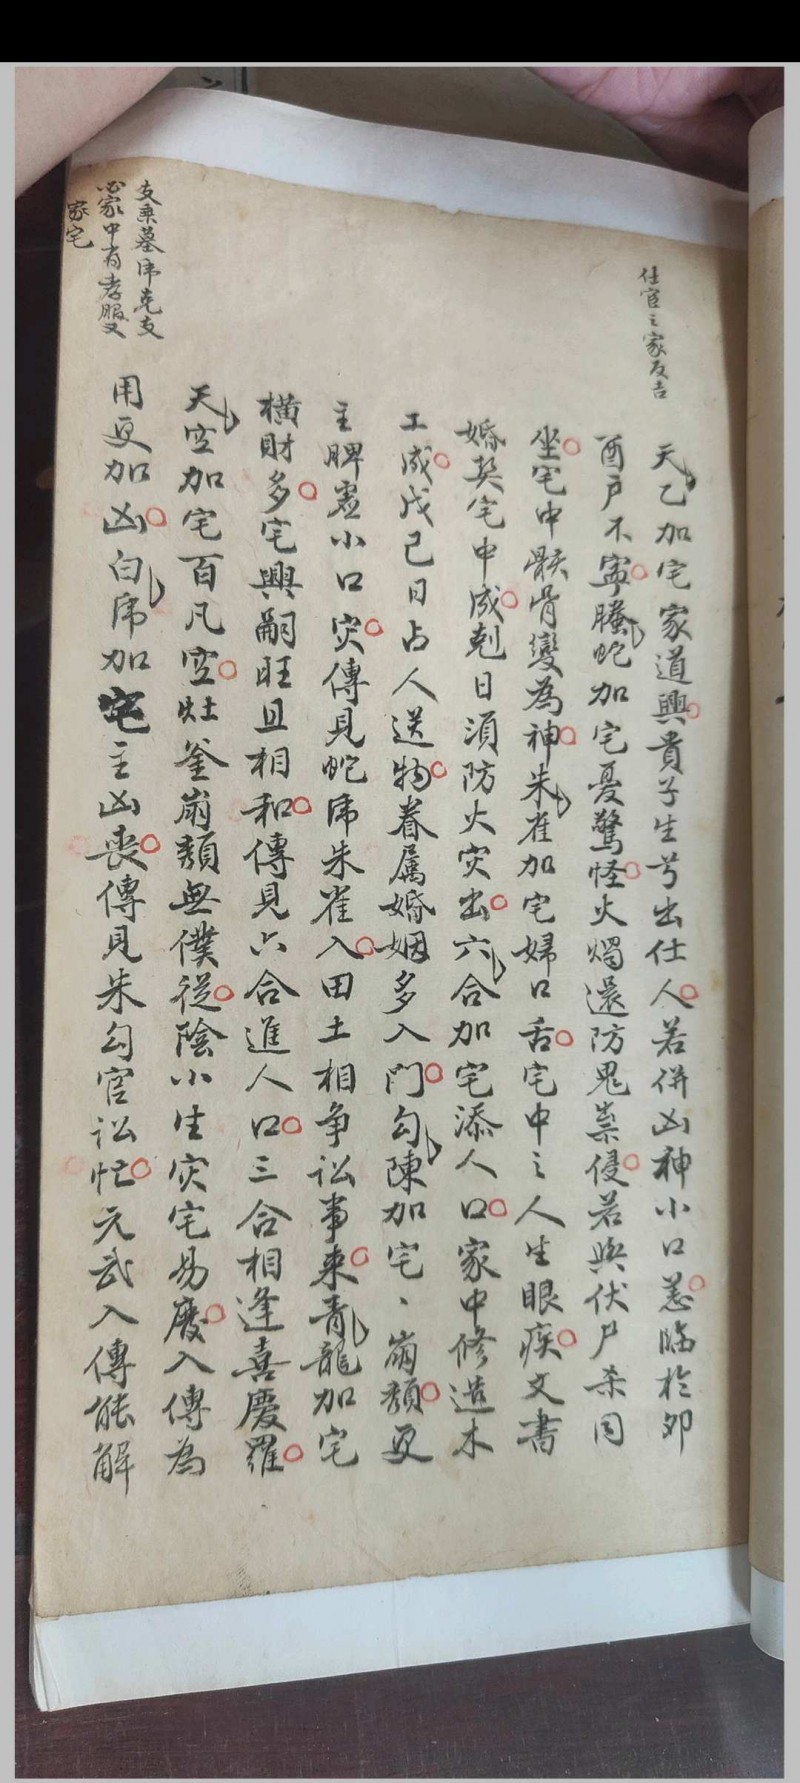 仕官之家反吉
天乙加宅家道興貴子生兮出仕人若併凶神小口恙臨於卯
酉戶不寧騰蛇加宅憂驚怪火燭還防鬼祟侵若與伏尸杀同
坐宅中骸骨變為神朱雀加宅婦口舌宅中之人生眼疾文書
婚契宅中成剋日須防火灾出六合加宅添人口家中修造木
工成戊己日占人送物眷属婚姻多入門勾陳加宅、崩頽更
主脾虛小口灾傳見蛇虎朱雀入田土相争訟事来青龍加宅
橫財多宅興嗣旺且相和傳見六合進人口三合相逢喜慶羅
天空加宅百凡空灶釜崩頽無僕從陰小生灾宅易廢入傳為
用更加凶白虎加宅主凶喪傳見朱勾官訟忙元武入傳能解
支乘墓虎克支
必家中有孝服又
家宅